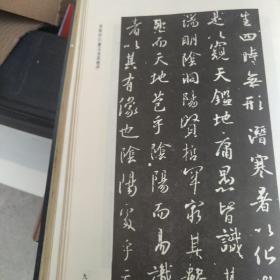 生四時無形潛寒暑以化
是以窺天鑑地庸愚皆識
端明陰洞陽賢哲罕窮其數
然而天地苞乎陰陽而易識
者以其有像也陰陽處乎天
九